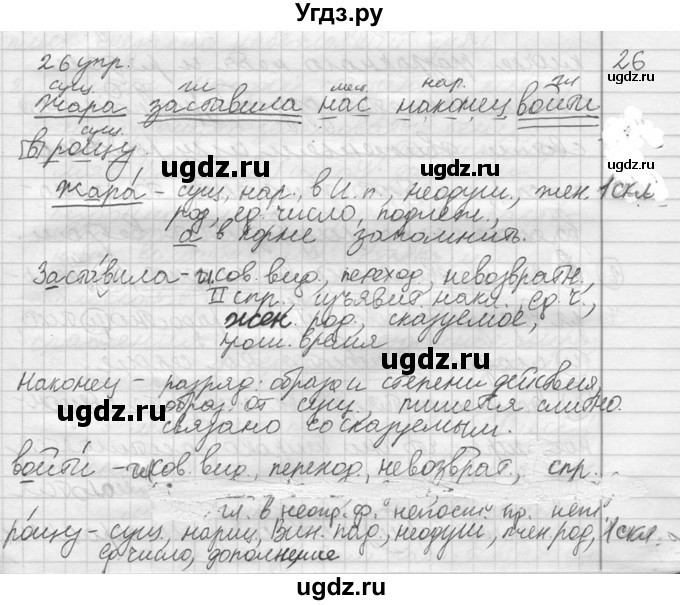 Угдз.ру
26 упр. 26
сущ. гл. мест. нар. гл.
Жара заставила нас наконец войти
сущ.
[в] рощу.
ugdz.ru ugdz.ru
Жара́ – сущ., нар., в И. п., неодуш., жен. 1 скл.
род, ед. число, подлеж.,
а в корне запомнить.
Заста́вила – гл. сов. вид., переход., невозвратн.,
II спр., изъявит. накл., ед. ч.,
жен. род, сказуемое,
прош. время
ugdz.ru
Наконец – разряд: образа и степени действия,
образ. от сущ., пишется слитно.
связано со сказуемым.
ugdz.ru
войти́ – гл. сов. вид., переход., невозврат., спр.
гл. в неопр. ф.
ро́щу – сущ., нариц., Вин. пад., неодуш., жен. род, 1 скл.
ед. число, дополнение
ugdz.ru ugdz.ru
ugdz.ru